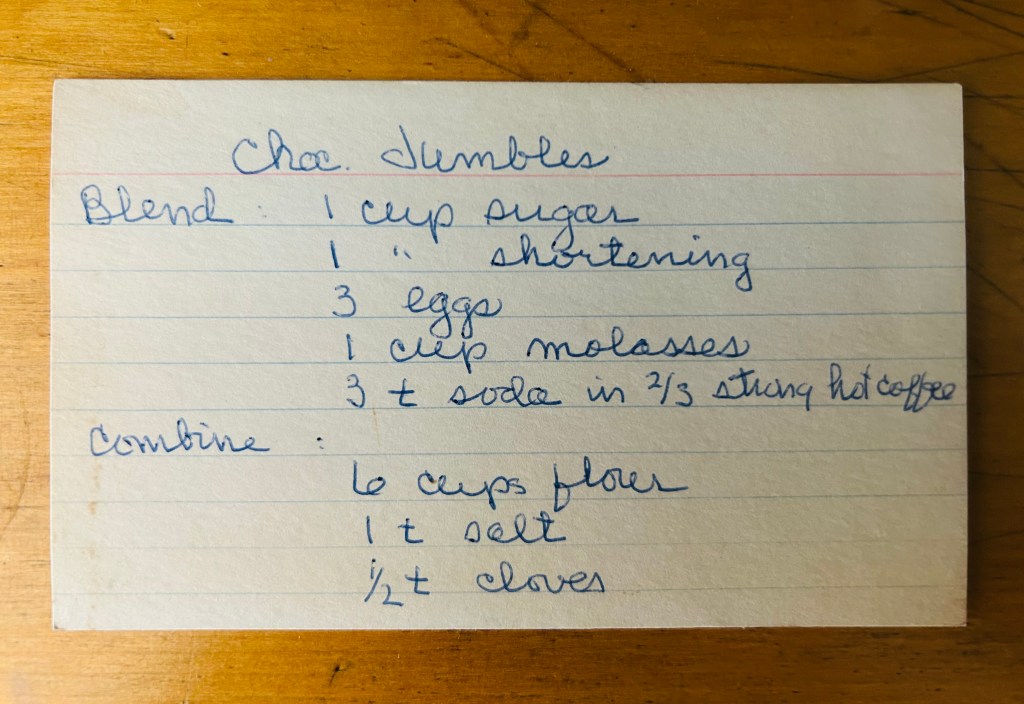 Choc. Jumbles
Blend : 1 cup sugar
1 " shortening
3 eggs
1 cup molasses
3 t soda in 2/3 strong hot coffee
Combine :
6 cups flour
1 t salt
1/2 t cloves